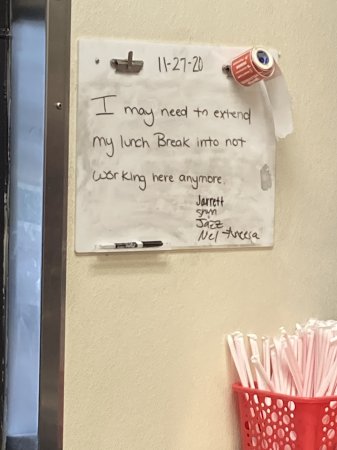 11-27-20
I may need to extend
my lunch Break into not
working here anymore.
Jarrett
Jazz
Nel -Aneesa